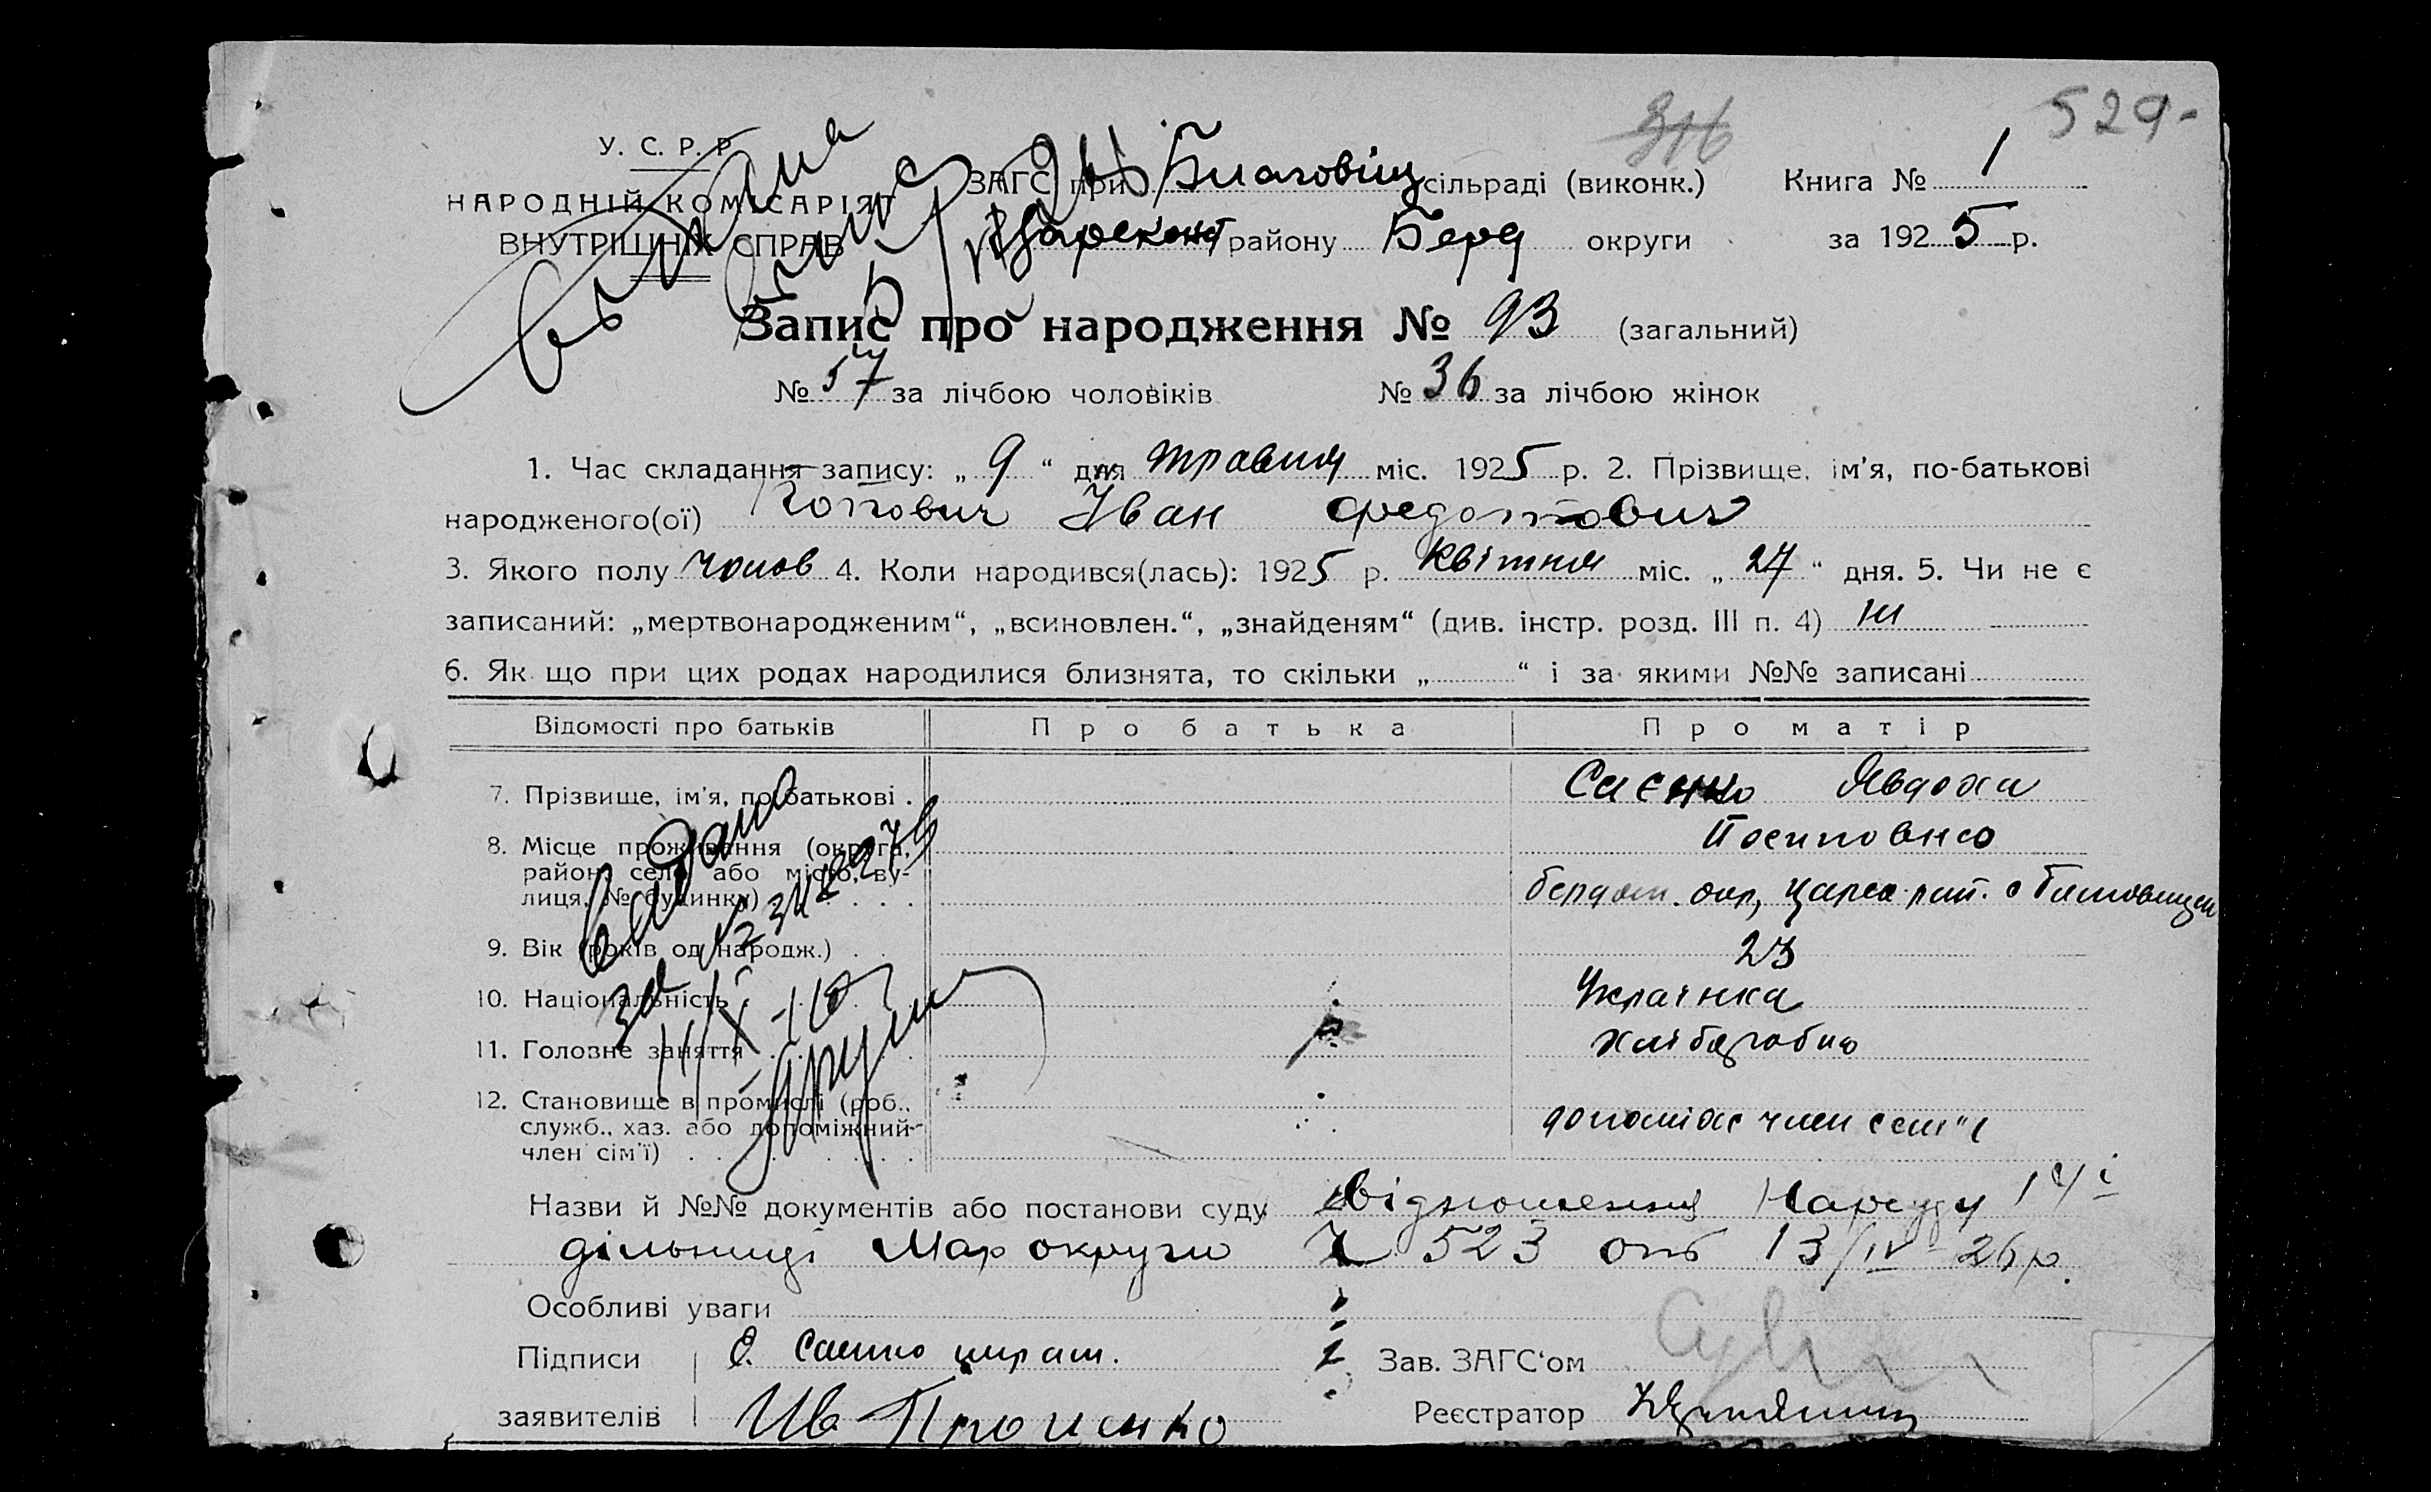 529-
316
У. С. Р. Р.
НАРОДНІЙ КОМІСАРІЯТ
ВНУТРІШНІХ СПРАВ
ЗАГС при Благовіщ сільраді (виконк.) Книга № 1
Царекост району Берд округи за 1925 р.
Запис про народження № 93 (загальний)
№ 57 за лічбою чоловіків № 36 за лічбою жінок
1. Час складання запису: „ 9 “ дня травня міс. 1925 р. 2. Прізвище, ім'я, по-батькові
народженого(ої) Копович Іван Федотович
3. Якого полу чолов 4. Коли народився(лась): 1925 р. Квітня міс. „ 27 “ дня. 5. Чи не є
записаний: „мертвонародженим“, „всиновлен.“, „знайденям“ (див. інстр. розд. III п. 4) ні
6. Як що при цих родах народилися близнята, то скільки „ “ і за якими №№ записані
Відомості про батьків Про батька Про матір
7. Прізвище, ім'я, по-батькові . Саєнко Явдоха
Посиповна
8. Місце проживання (округа,
район, село або місто, ву-
лиця, № будинку) . . . . берд окр, царек
9. Вік (років од народж.) . . 23
10. Національність Українка
11. Головне заняття хліборобка
12. Становище в промислі (роб.,
служб., хаз. або допоміжний
член сім'ї) . . . . . . допоміж член сем"ї
видана
за №
Назви й №№ документів або постанови суду Відношення Нарсуду 14ї
дільниці Мар округи № 523 от 13/IV 26 р.
Особливі уваги
Підписи Саєнко Зав. ЗАГС'ом
заявителів Ив Проценко Реєстратор